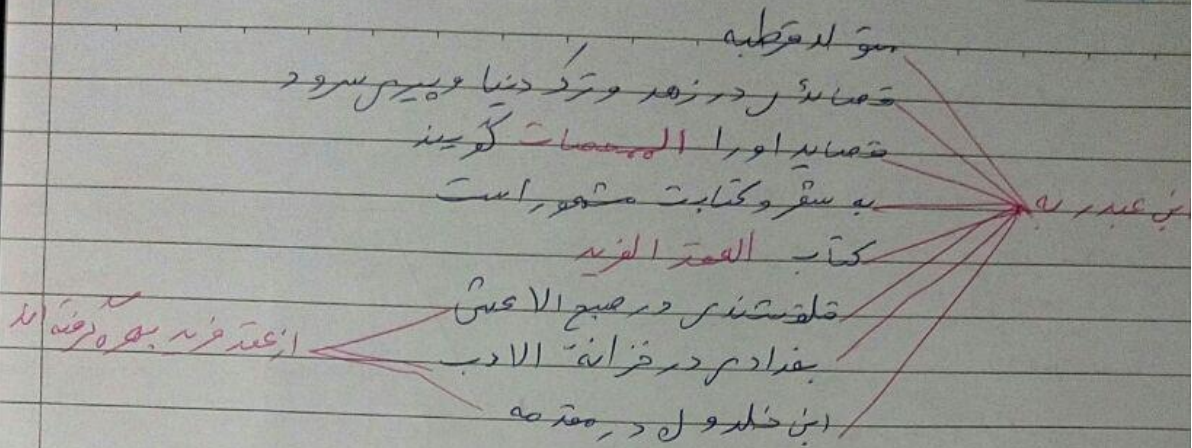 ابن عبدربه
متولد قرطبه
قصائدش در زهد و ترک دنیا و پیری سرود
قصاید او را الممحصات گویند
به شعر و کتابت مشهور است
کتاب العقد الفرید
قلقشندی در صبح الاعشی
بغدادی در خزانة الادب
ابن خلدون در مقدمه
از عقد فرید بهره گرفته اند